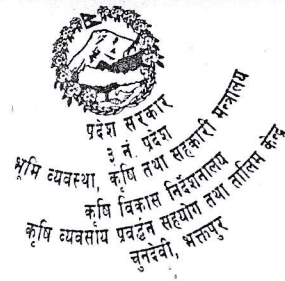 प्रदेश सरकार
३ नं. प्रदेश
भूमि व्यवस्था, कृषि तथा सहकारी मन्त्रालय
कृषि विकास निर्देशनालय
कृषि व्यवसाय प्रवर्द्धन सहयोग तथा तालिम केन्द्र
चुनदेवी, भक्तपुर